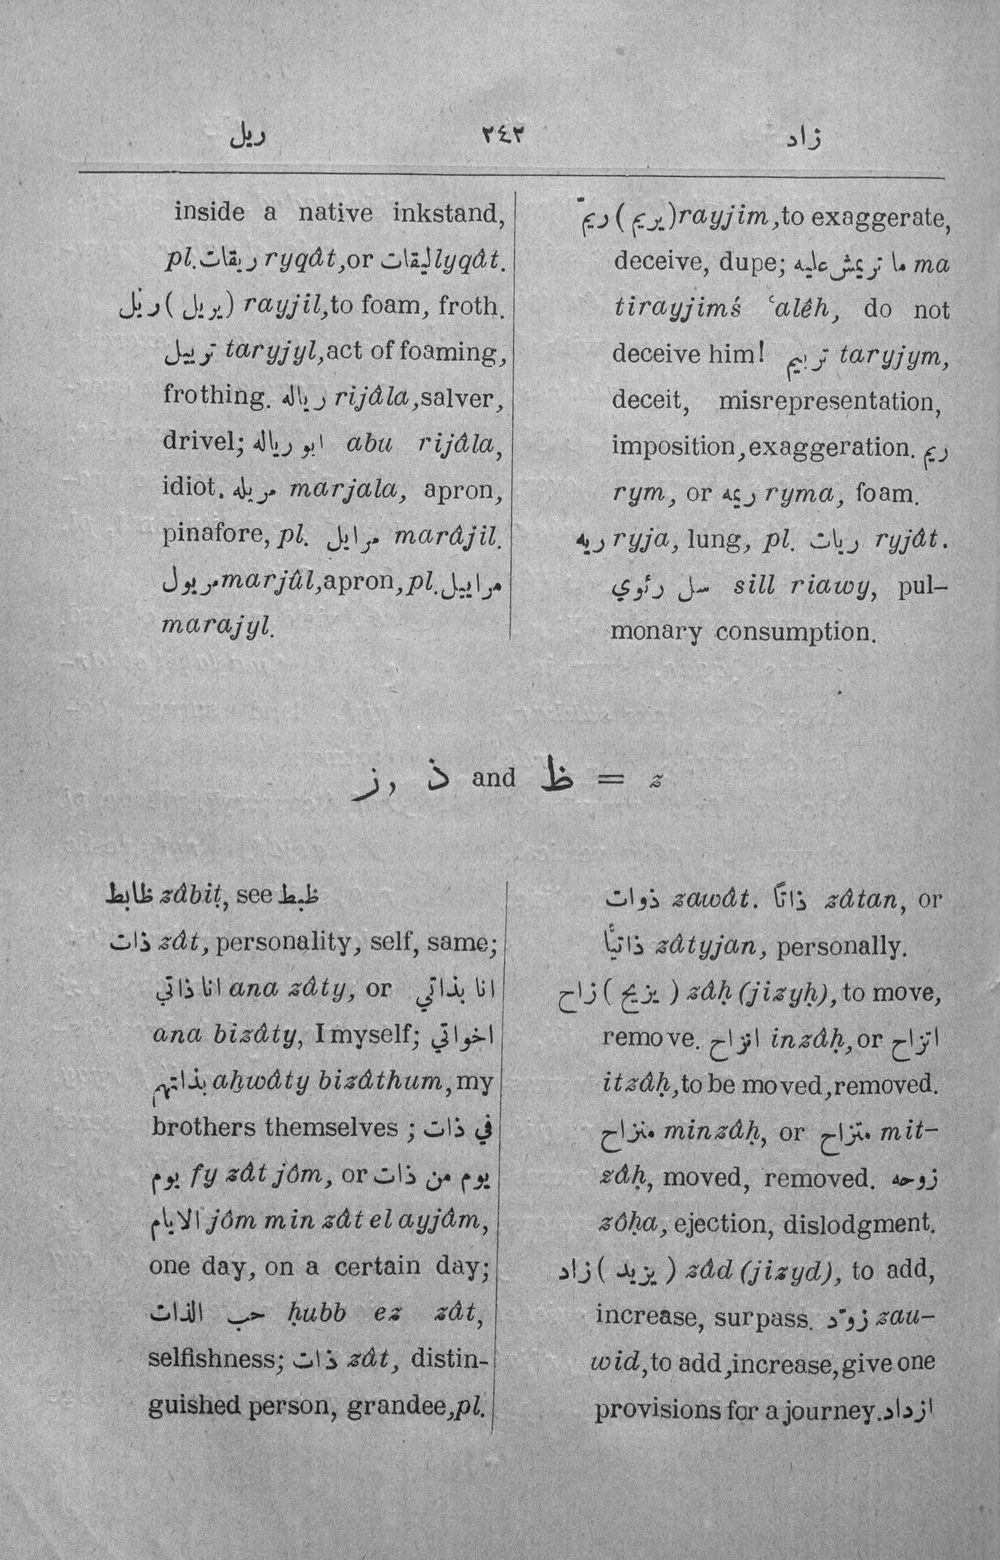 ريل ٢٤٢ زاد
inside a native inkstand,
pl. ريقات ryqât, or ليقات lyqât.
ريّل (يريل) rayjil, to foam, froth.
ترييل taryjyl, act of foaming,
frothing. رياله rijâla, salver,
drivel; ابو رياله abu rijâla,
idiot. مريله marjala, apron,
pinafore, pl. مرايل marâjil.
مريول marjûl, apron, pl. مراييل
marajyl.
ريّم (يريم) rayjim, to exaggerate,
deceive, dupe; ما تريمش عليه ma
tirayjimś ʿalêh, do not
deceive him! تريم taryjym,
deceit, misrepresentation,
imposition, exaggeration. ريم
rym, or ريمه ryma, foam.
ريه ryja, lung, pl. ريات ryjât.
سل رئوي sill riawy, pul-
monary consumption.
ز, ذ and ظ = z
ظابط zâbiṭ, see ظبط
ذات zât, personality, self, same;
انا ذاتي ana zâty, or انا بذاتي
ana bizâty, I myself; اخواتي
بذاتهم aḥwâty bizâthum, my
brothers themselves; في ذات
يوم fy zât jôm, or يوم من ذات
الايام jôm min zât el ayjâm,
one day, on a certain day;
حب الذات ḥubb ez zât,
selfishness; ذات zât, distin-
guished person, grandee, pl.
ذوات zawât. ذاتًا zâtan, or
ذاتيًّا zâtyjan, personally.
زاح (يزيح) zâḥ (jizyḥ), to move,
remove. انزاح inzâḥ, or اتزاح
itzâḥ, to be moved, removed.
منزاح minzâḥ, or متزاح mit-
zâḥ, moved, removed. زوحه
zôḥa, ejection, dislodgment.
زاد (يزيد) zâd (jizyd), to add,
increase, surpass. زوّد zau-
wid, to add, increase, give one
provisions for a journey. ازداد